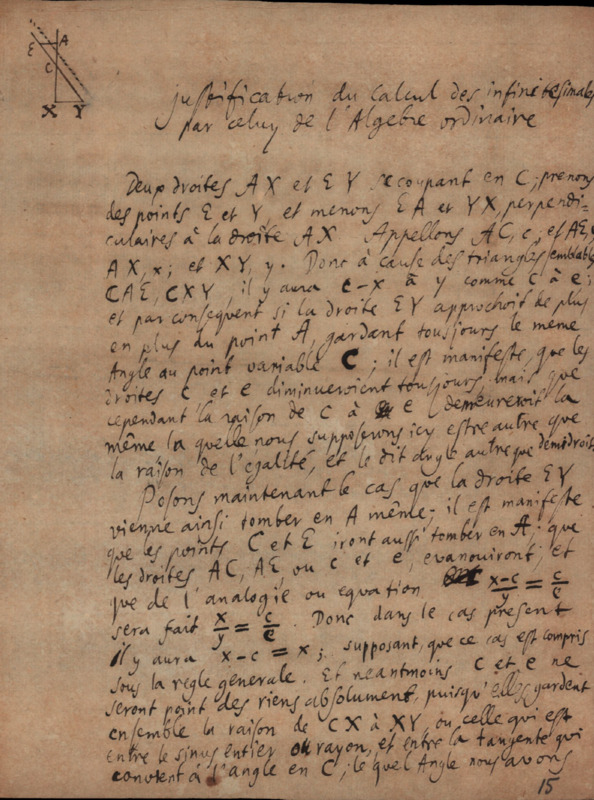 A
E
C
X Y
justification du calcul des infinitesimales
par celuy de l'Algebre ordinaire
Deux droites AX et EY se coupant en C, prenons
des points E et Y, et menons EA et YX, perpendi=
culaires à la droite AX. Appellons AC, c; et AE, e;
AX, x; et XY, y. Donc à cause des triangles semblables
CAE, CXY, il y aura c-x à y comme c à e;
et par consequent si la droite EY approchoit de plus
en plus du point A, gardant tousjours le meme
Angle au point variable C; il est manifeste, que les
droites c et e diminueroient tousjours; mais que
cependant la raison de c à e demeureroit la
même la quelle nous supposerons icy estre autre que
la raison de l'égalité, et le dit angle autre que demidroit
Posons maintenant le cas que la droite EY
vienne ainsi tomber en A même; il est manifeste
que les points C et E iront aussi tomber en A; que
les droites AC, AE, ou c et e, evanouiront; et
que de l'analogie ou equation x-c/y = c/e
sera fait x/y = c/e. Donc dans le cas present
il y aura x-c = x; supposant, que ce cas est compris
sous la regle generale. Et neantmoins c et e ne
seront point des riens absolument, puisqu'elles gardent
ensemble la raison de CX à XY, ou celle qui est
entre le sinus entier ou rayon, et entre la tangente qui
convient à l'angle en C; le quel Angle nous avons
15